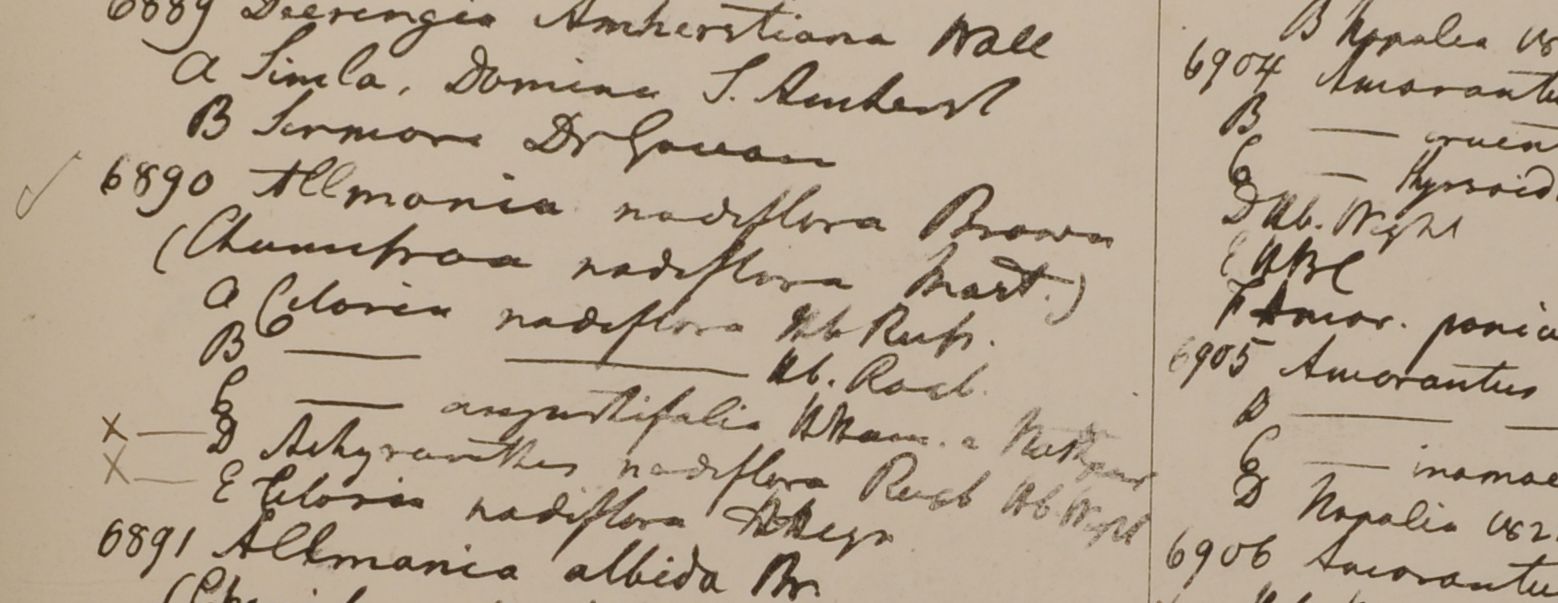 6889 Deeringia Amherstiana Wall
a Simla, Domina S. Amherst
B Sirmore Dr Govan
6890 Allmania nodiflora Brown
(Chamissoa nodiflora Mart.)
a Celosia nodiflora Hb Russ.
B — — Hb. Roxb.
C — angustifolia HHam. a
D Achyranthes nodiflora Roxb Hb. Wight
E Celosia nodiflora HHeyn
6891 Allmania albida Br.
B Napalia 182
6904 Amarantu
B — cruen
C — thyrsoid
D Hb. Wight
E HBC
F Amar. panic
6905 Amarantus
B — —
C — inamoe
D Napalia 182
6906 Amarantu